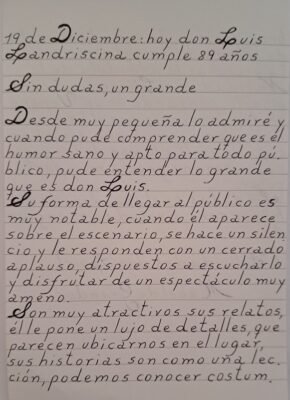 19 de Diciembre: hoy don Luis
Landriscina cumple 89 años
Sin dudas, un grande
Desde muy pequeña lo admiré y
cuando pude comprender que es el
humor sano y apto para todo pú.
blico, pude entender lo grande
que es don Luis.
Su forma de llegar al público es
muy notable, cuando él aparece
sobre el escenario, se hace un silen
cio y le responden con un cerrado
aplauso, dispuestos a escucharlo
y disfrutar de un espectáculo muy
ameno.
Son muy atractivos sus relatos,
él le pone un lujo de detalles, que
parecen ubicarnos en el lugar,
sus historias son como una lec.
ción, podemos conocer costum.